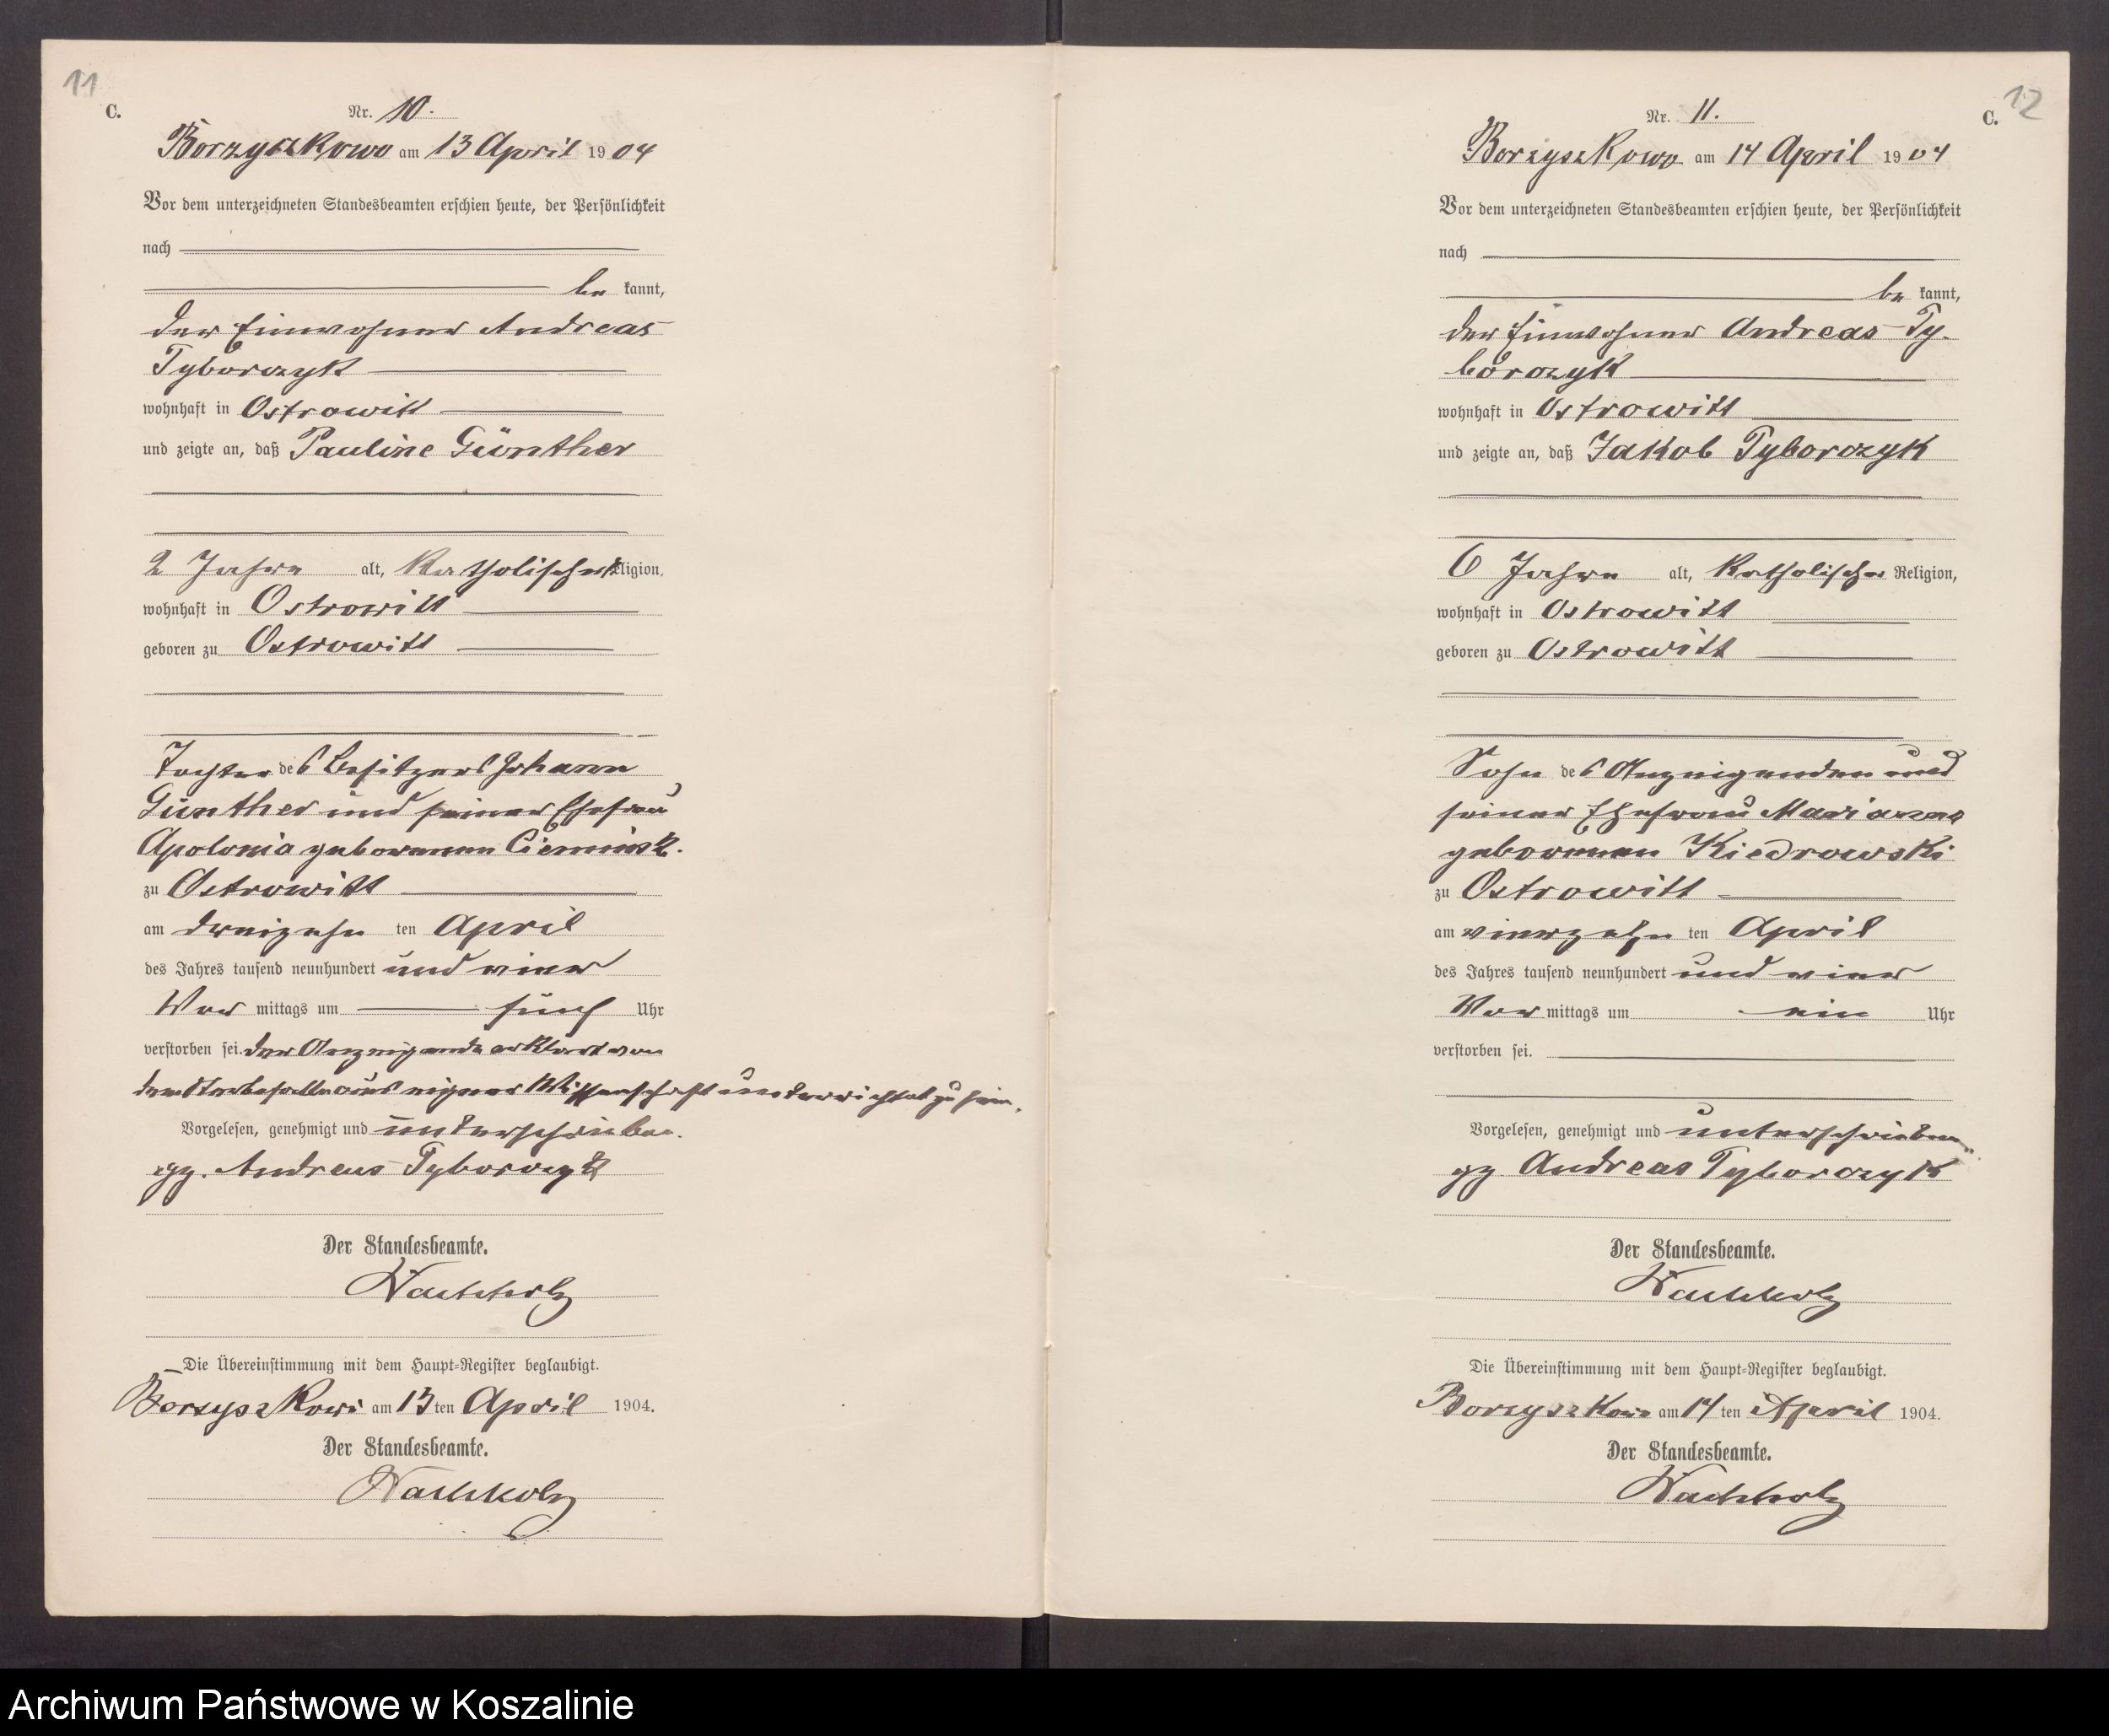 11
C.
Nr. 10.
Borzyszkowo am 13 April 1904
Vor dem unterzeichneten Standesbeamten erschien heute, der Persönlichkeit
nach
be kannt,
der Einwohner Andreas
Tyborczyk
wohnhaft in Ostrowitt
und zeigte an, daß Pauline Günther
2 Jahre alt, katholischer Religion,
wohnhaft in Ostrowitt
geboren zu Ostrowitt
Tochter des Besitzers Johann
Günther und seiner Ehefrau
Apolonia geborenen Cieminsk.
zu Ostrowitt
am dreizehn ten April
des Jahres tausend neunhundert und vier
Vor mittags um fünf Uhr
verstorben sei. Der Anzeigende erklärt von
dem Sterbefalle aus eigner Wissenschaft unterrichtet zu sein.
Vorgelesen, genehmigt und unterschrieben.
gz. Andreas Tyborczyk
Der Standesbeamte.
Wachholz
Die Übereinstimmung mit dem Haupt-Register beglaubigt.
Borzyszkowo am 13 ten April 1904.
Der Standesbeamte.
Wachholz
12
C.
Nr. 11.
Borzyszkowo am 14 April 1904
Vor dem unterzeichneten Standesbeamten erschien heute, der Persönlichkeit
nach
be kannt,
der Einwohner Andreas Ty-
borczyk
wohnhaft in Ostrowitt
und zeigte an, daß Jakob Tyborczyk
6 Jahre alt, katholischer Religion,
wohnhaft in Ostrowitt
geboren zu Ostrowitt
Sohn des Anzeigenden und
seiner Ehefrau Marianna
geborenen Kiedrowski
zu Ostrowitt
am vierzehn ten April
des Jahres tausend neunhundert und vier
Vor mittags um ein Uhr
verstorben sei.
Vorgelesen, genehmigt und unterschrieben
gz Andreas Tyborczyk
Der Standesbeamte.
Wachholz
Die Übereinstimmung mit dem Haupt-Register beglaubigt.
Borzyszkowo am 14 ten April 1904.
Der Standesbeamte.
Wachholz
Archiwum Państwowe w Koszalinie